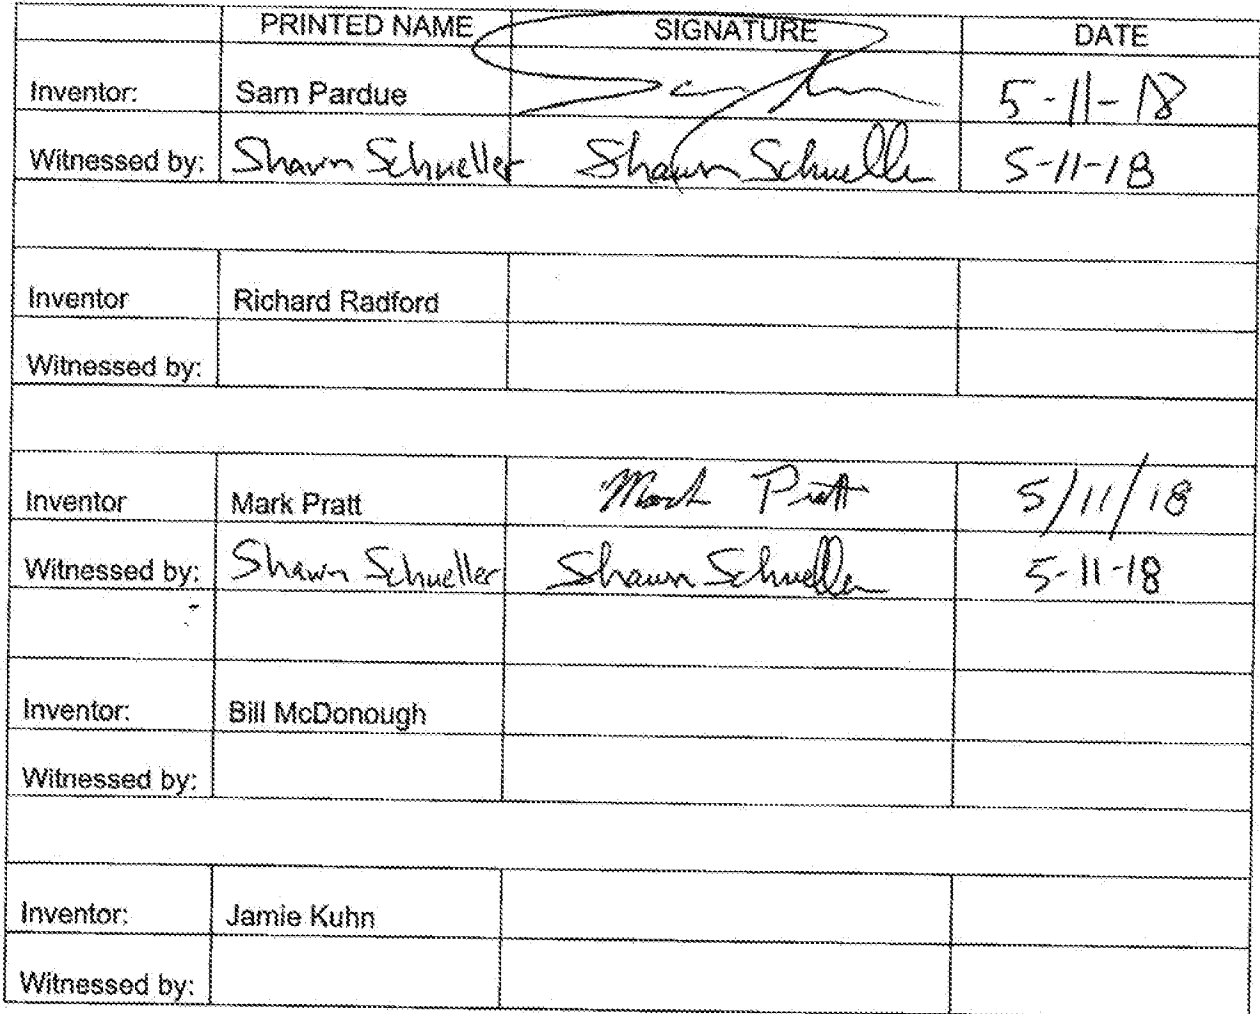 PRINTED NAME SIGNATURE DATE
Inventor: Sam Pardue 5-11-18
Witnessed by: Shawn Schueller Shawn Schueller 5-11-18
Inventor Richard Radford
Witnessed by:
Inventor Mark Pratt Mark Pratt 5/11/18
Witnessed by: Shawn Schueller Shawn Schueller 5-11-18
Inventor: Bill McDonough
Witnessed by:
Inventor: Jamie Kuhn
Witnessed by: